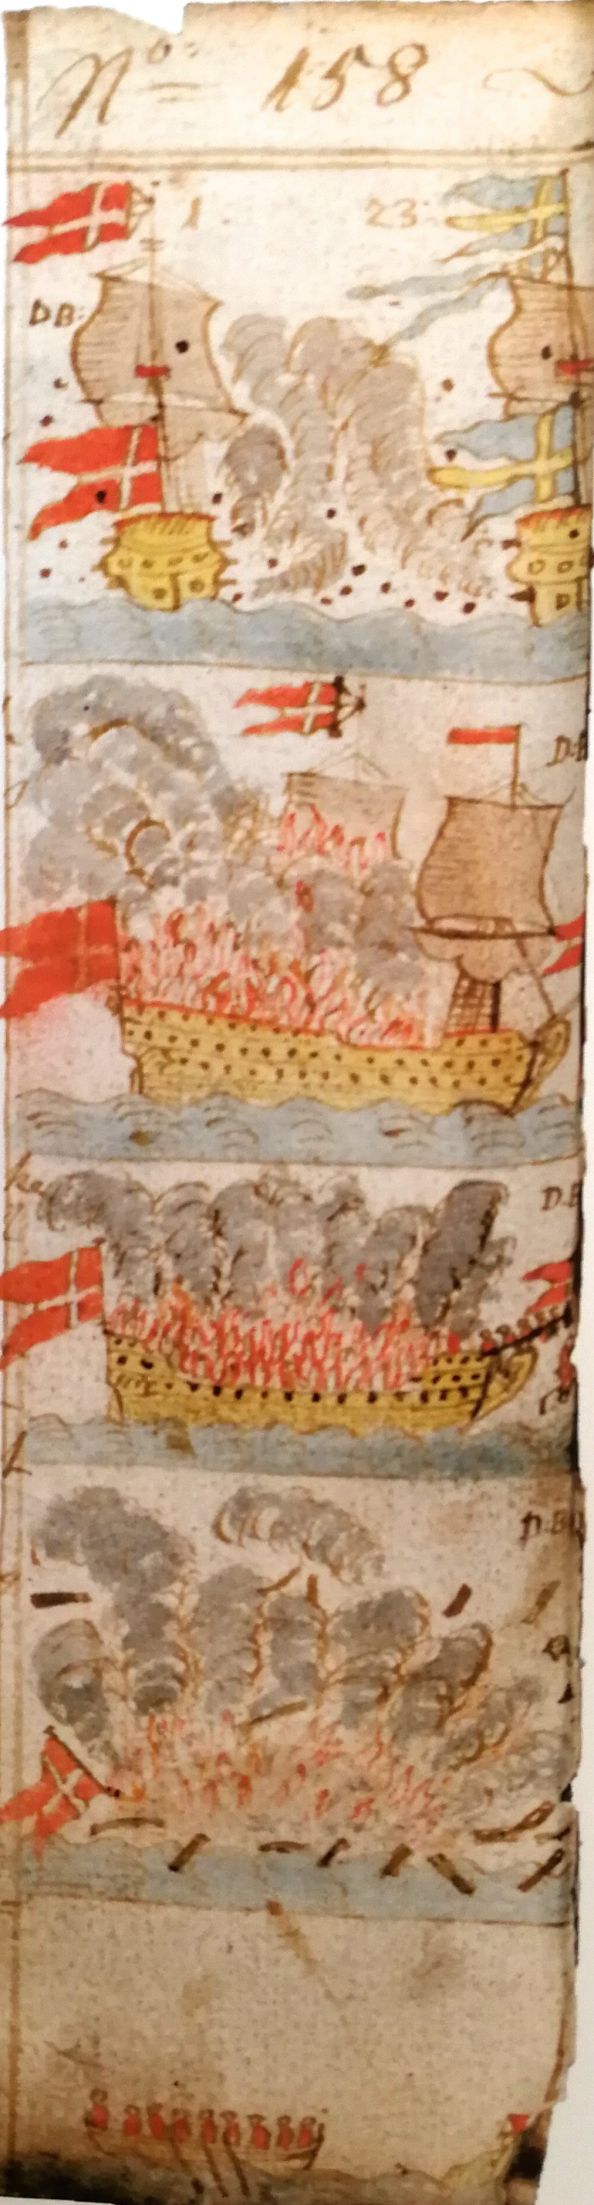 No: 158
1
23
DB:
D:B
D.B
D:B